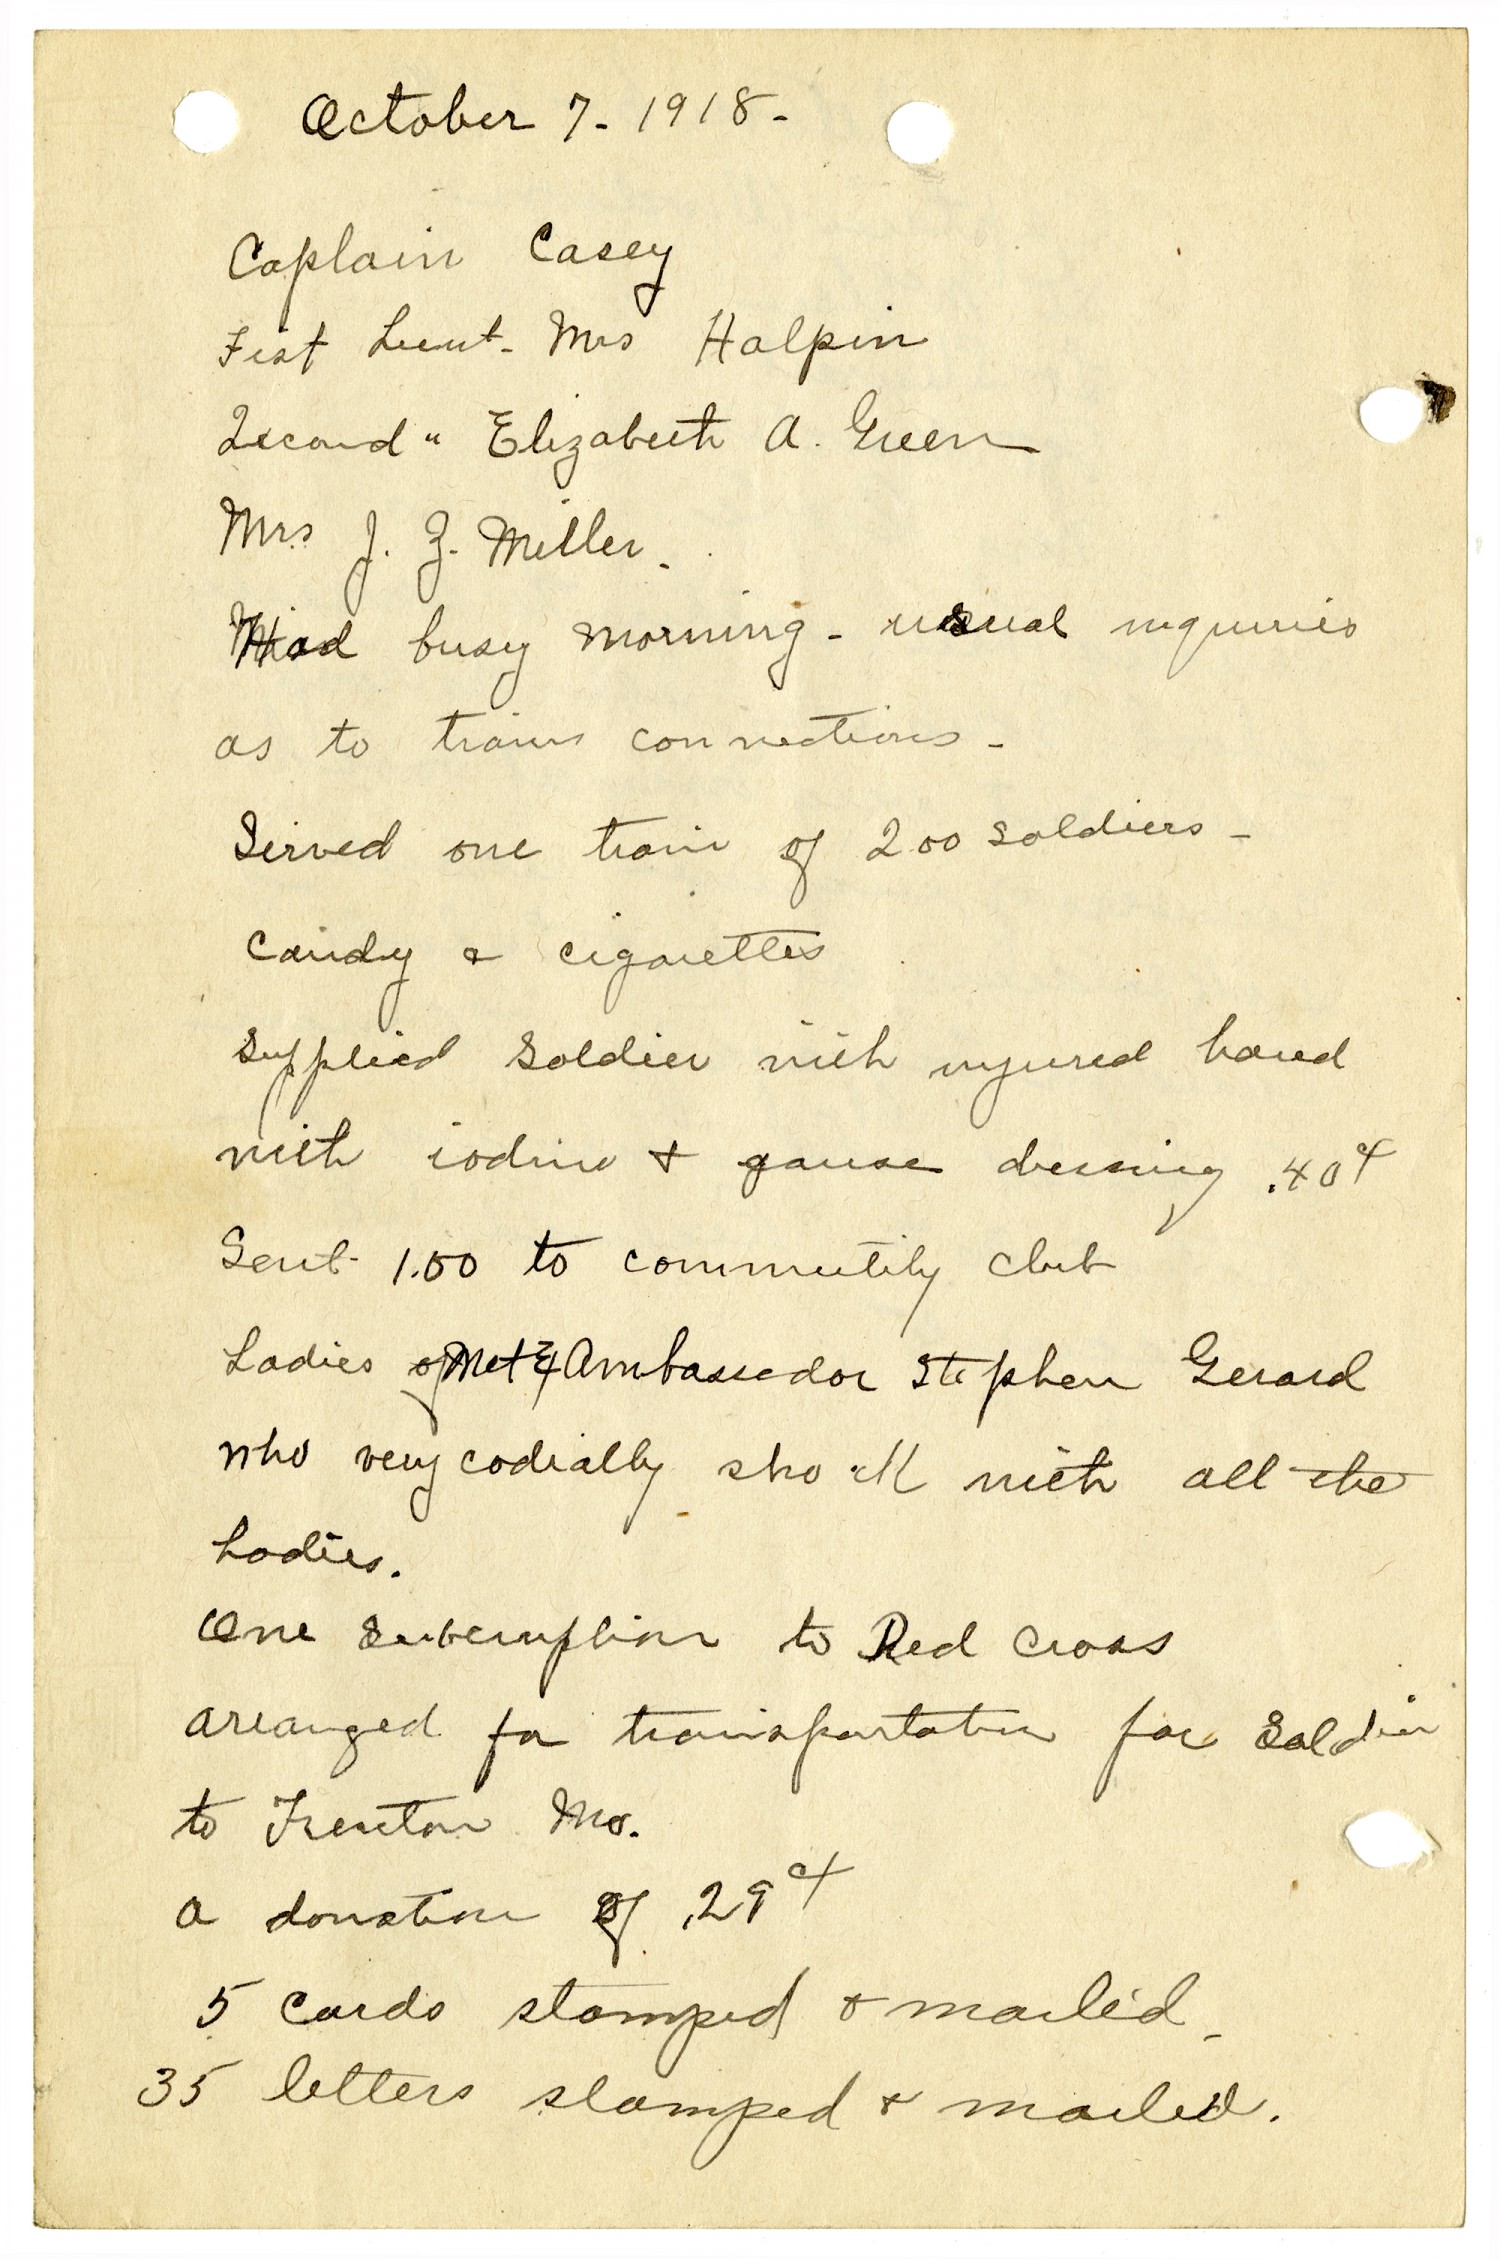 October 7 - 1918 -
Captain Casey
Fist Lieut - Mrs Halpin
Second " Elizabeth A. Green
Mrs J. Z. Miller.
Had busy morning - usual inquiries
as to trains connections -
Served one train of 200 soldiers -
Candy & cigarettes
Supplied soldier with injured hand
with iodine & gause dressing .40¢
Sent 1.00 to commutity club
Ladies of Met Ex Ambassador Stephen Gerard
who very codially shook with all the
Ladies.
One Subscription to Red Cross
arranged for transportation for Soldier
to Trenton Mo.
a donation of .29¢
5 cards stamped & mailed -
35 letters stamped & mailed.